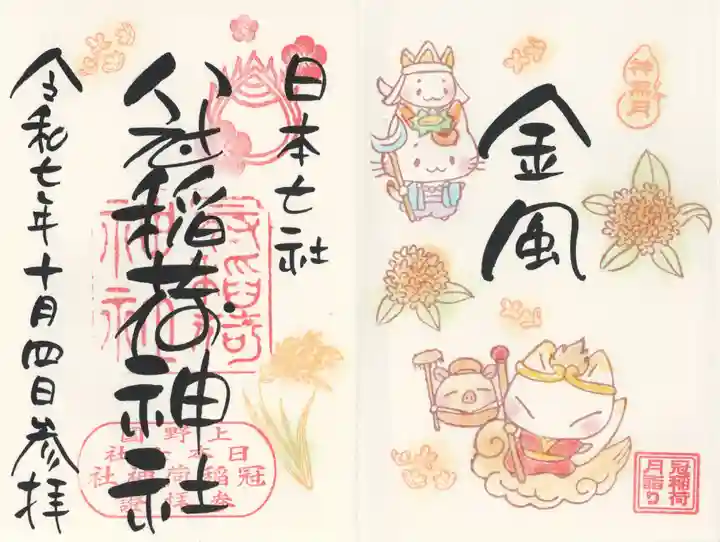 神無月
金風
冠稲荷
月詣り
日本七社
冠稲荷神社
令和七年十月四日参拝
上野國
日本七社
冠稲荷神社
参拝證